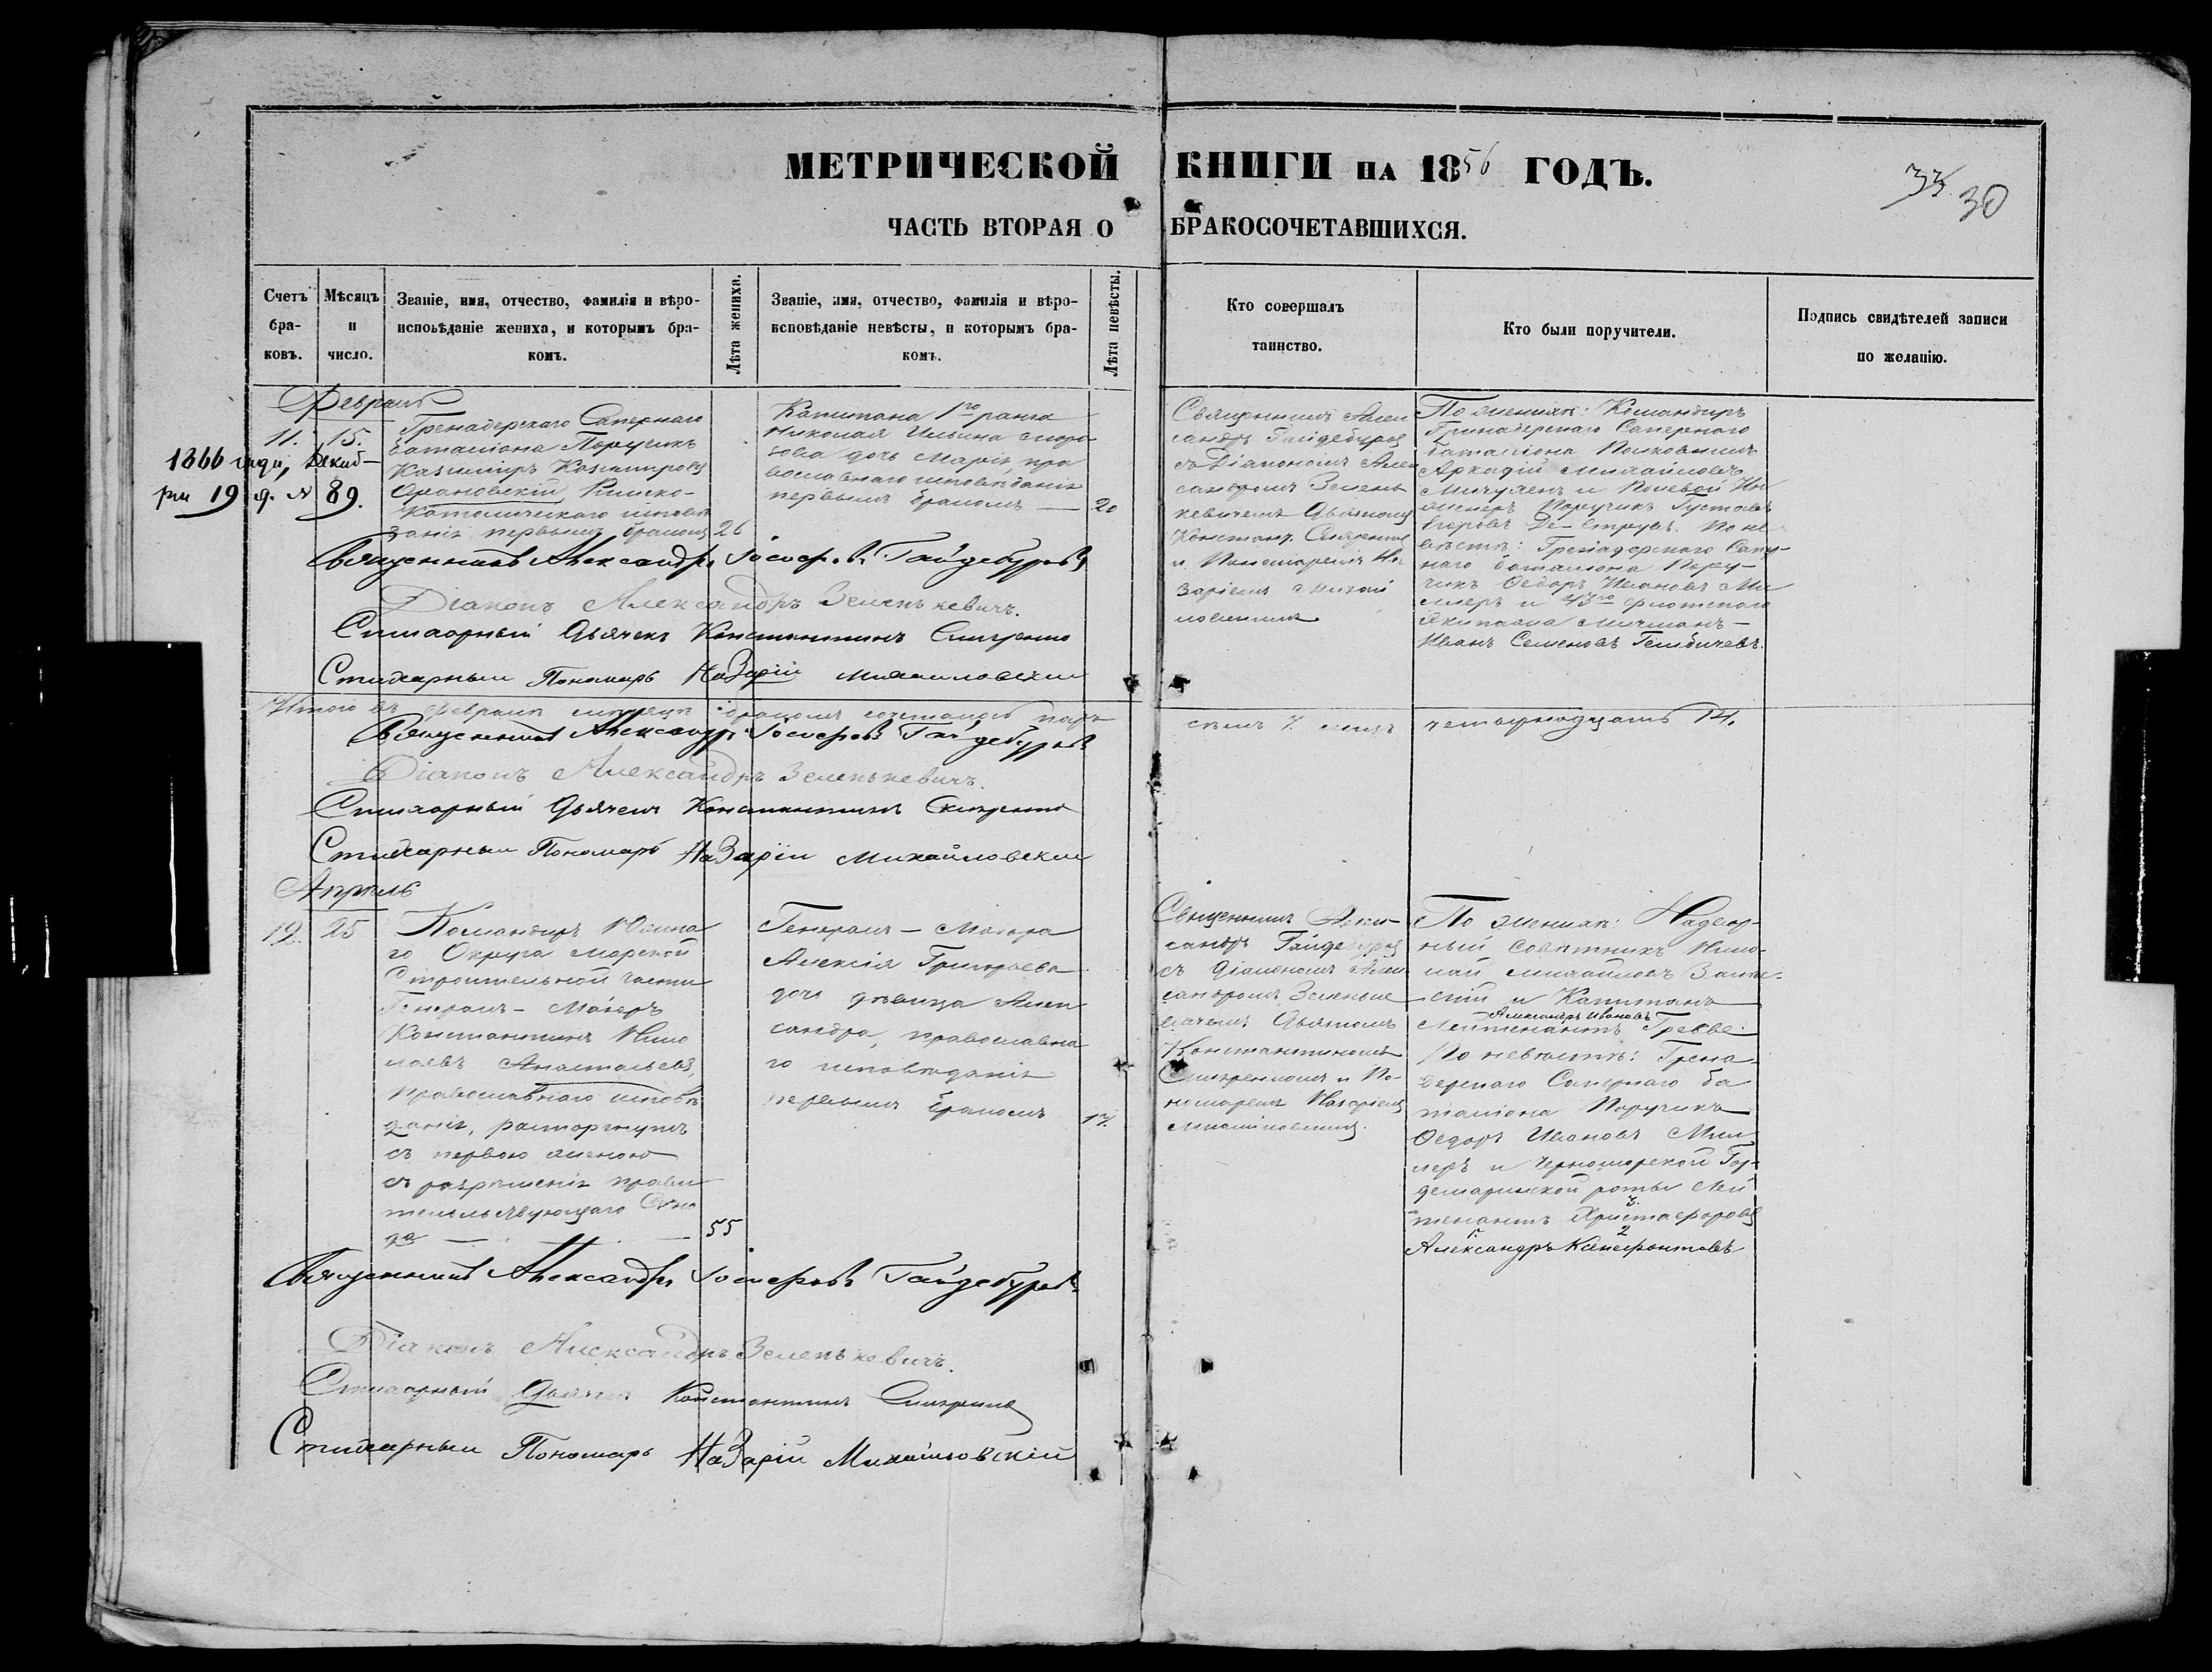 МЕТРИЧЕСКОЙ КНИГИ НА 1856 ГОДЪ.
33 30
ЧАСТЬ ВТОРАЯ О БРАКОСОЧЕТАВШИХСЯ.
Счетъ бра-
ковъ.
Мѣсяцъ
и
число.
Званіе, имя, отчество, фамилія и вѣро-
исповѣданіе жениха, и которымъ бра-
комъ.
Лѣта жениха.
Званіе, имя, отчество, фамилія и вѣро-
исповѣданіе невѣсты, и которымъ бра-
комъ.
Лѣта невѣсты.
Кто совершалъ
таинство.
Кто были поручители.
Подпись свидѣтелей записи
по желанію.
Февраль
11. 15.
1866 года, Декаб-
ря 19 д. № 89.
Гренадерскаго Сапернаго
баталіона Поручикъ
Казимиръ Казимировъ
Римско-
Католическаго исповѣ
данія первымъ бракомъ
26
Капитана 1го ранга
Николая Ильина
дочь Марія, пра
вославнаго исповѣданія
первымъ бракомъ
20
Священникъ Алек
сандръ Гайдебуровъ
съ Діакономъ Алек
сандромъ Зелень
кевичемъ Дьячкомъ
Констант.
и Пономаремъ На
заріемъ Михай
ловскимъ
По женихѣ: Командиръ
Гренадерскаго Сапернаго
баталіона Полковникъ
Аркадій Михайловъ
и Полевой Ин
женеръ Поручикъ Густавъ
Егоровъ По не
вѣстѣ: Гренадерскаго Сапер-
наго баталіона Пору-
чикъ Ѳедоръ Ивановъ Ми
леръ и 43го флотскаго
Экипажа Мичманъ
Иванъ Семеновъ
Священникъ Александръ Іосифовъ Гайдебуровъ
Діаконъ Александръ Зеленькевичъ.
Стихарный Дьячекъ Константинъ
Стихарный Пономарь Назарій Михайловскій
Итого въ февралѣ мѣсяцѣ бракомъ сочеталось паръ
семь 7. лицъ четырнадцать 14.
Священникъ Александръ Іосифовъ Гайдебуровъ
Діаконъ Александръ Зеленькевичъ.
Стихарный Дьячекъ Константинъ
Стихарный Пономарь Назарій Михайловскій
Апрѣль
12. 25
Командиръ Южна
го Округа морской
Строительной части
Генералъ-Маіоръ
Константинъ Нико
лаевъ Анастасьевъ,
православнаго исповѣ
данія, расторгнутъ
съ первою женою
съ разрѣшенія прави
тельствующаго Сино
да
55
Генералъ-Маіора
Алексія Григорьева
дочь дѣвица Алек
сандра, православна
го исповѣданія
первымъ бракомъ
17.
Священникъ Алек-
сандръ Гайдебуровъ
съ діакономъ Алек
сандромъ Зеленьке
вичемъ Дьячкомъ
Константиномъ
и По-
номаремъ Назаріемъ
Михайловскимъ.
По женихѣ: Надвор-
ный Совѣтникъ Нико-
лай Михайловъ
и Капитанъ
Александръ Ивановъ
Лейтенантъ
По невѣстѣ: Грена-
дерскаго Сапернаго ба
таліона Поручикъ
Ѳедоръ Ивановъ Мил
леръ и Черноморской Гар-
демаринской роты Лей
тенантъ Христофоровъ
Александръ Ксенофонтовъ
Священникъ Александръ Іосифовъ Гайдебуровъ
Діаконъ Александръ Зеленькевичъ.
Стихарный Дьячекъ Константинъ
Стихарный Пономарь Назарій Михайловскій